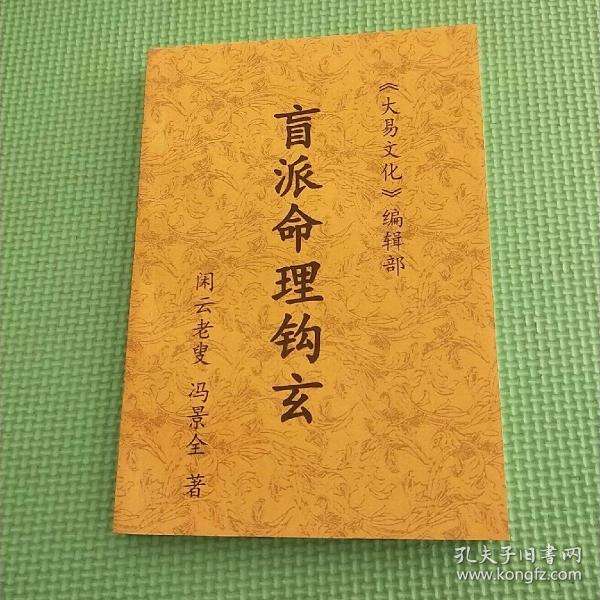 《大易文化》编辑部
盲派命理钩玄
闲云老叟 冯景全 著
孔夫子旧書网
www.kongfz.com